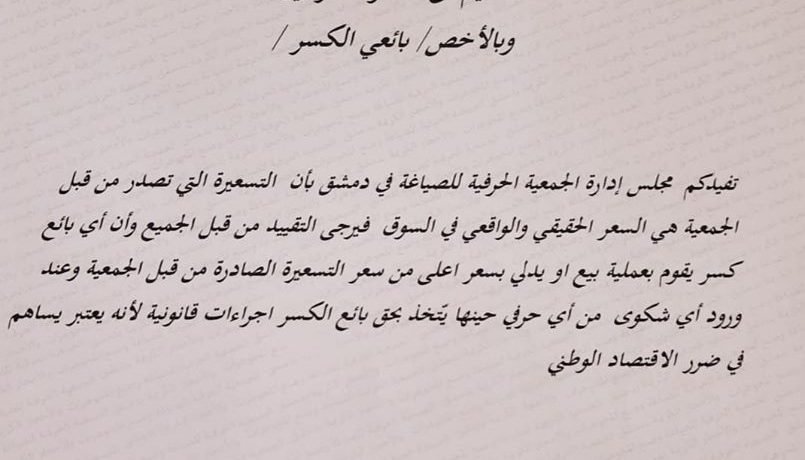 وبالأخص/ بائعي الكسر /
تفيدكم مجلس إدارة الجمعية الحرفية للصياغة في دمشق بأن التسعيرة التي تصدر من قبل
الجمعية هي السعر الحقيقي والواقعي في السوق فيرجى التقييد من قبل الجميع وأن أي بائع
كسر يقوم بعملية بيع او يدلي بسعر اعلى من سعر التسعيرة الصادرة من قبل الجمعية وعند
ورود أي شكوى من أي حرفي حينها يتّخذ بحق بائع الكسر اجراءات قانونية لأنه يعتبر يساهم
في ضرر الاقتصاد الوطني